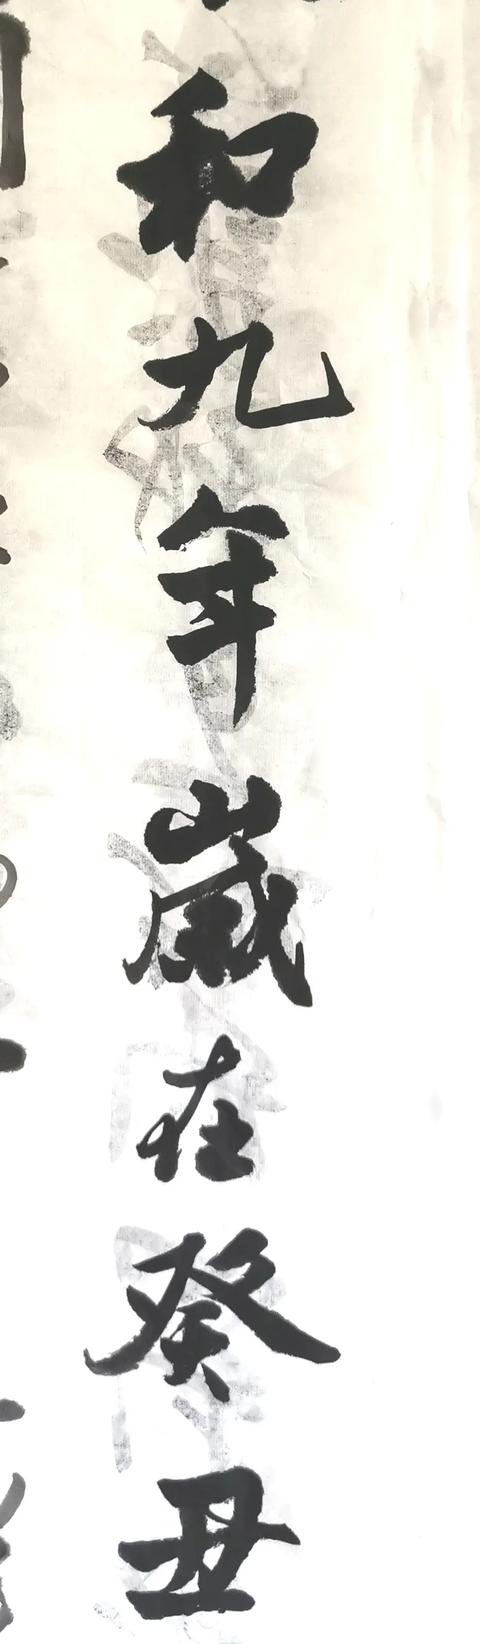 和九年歲在癸丑